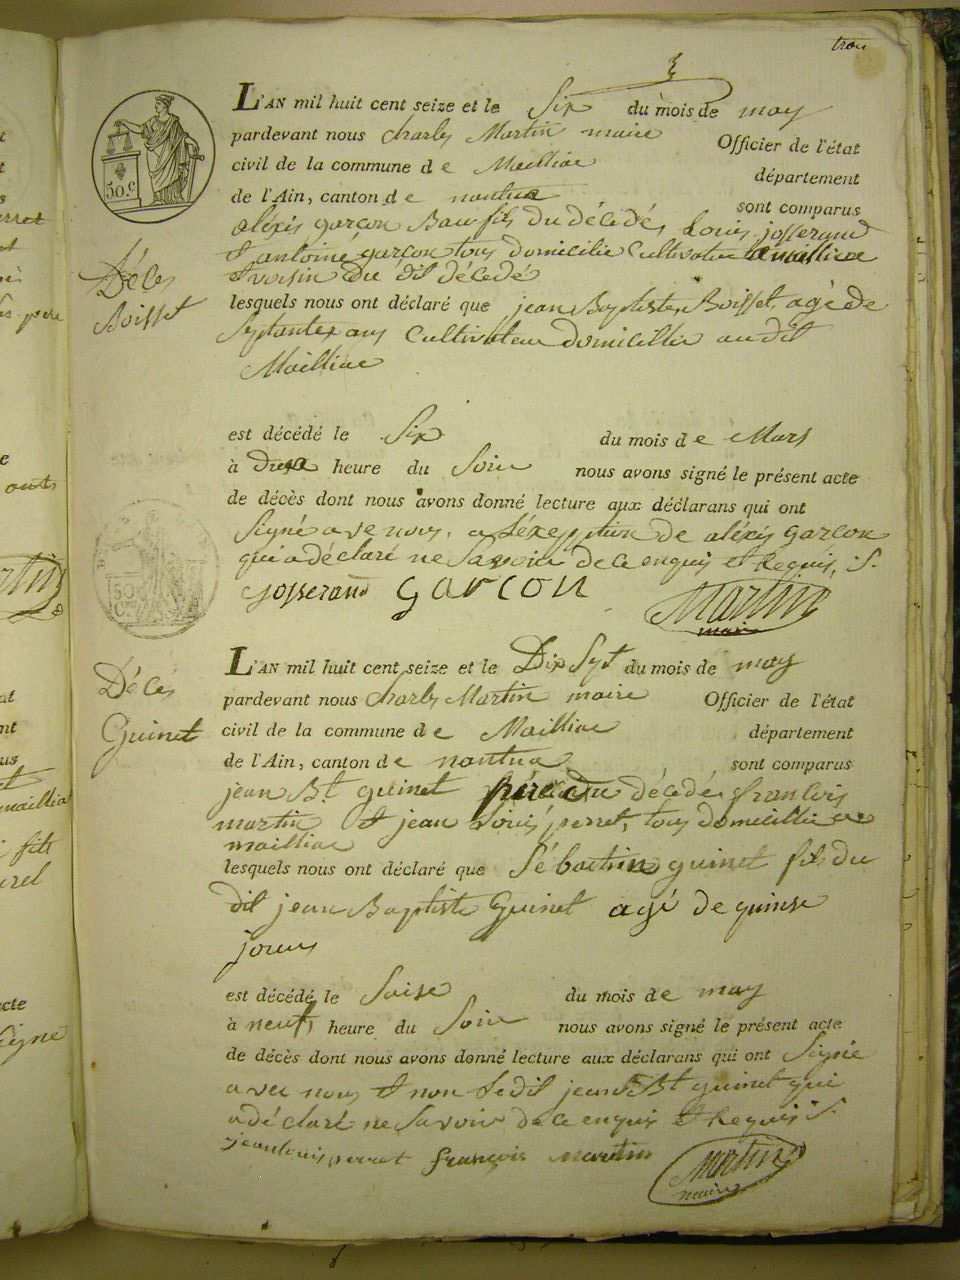 trois
L'AN mil huit cent seize et le Six du mois de may
pardevant nous charles Martin maire Officier de l'état
civil de la commune de Mailliac département
50.C
de l'Ain, canton de nantua sont comparus
aléxis garçon Beau fils du décédé, Louis josserand
Et antoine garçon tous domicilié Cultivateur a mailliac
Décès
Et voisin du dit décédé
Boisset
lesquels nous ont déclaré que jean Baptiste Boisset, agé de
Septante ans Cultivateur domicillié au dit
Mailliac
est décédé le Six du mois de Mars
à heure du Soire nous avons signé le présent acte
de décès dont nous avons donné lecture aux déclarans qui ont
Signé avec nous, a léxeption de aléxis garcon
qui a déclaré ne Savoire de ce enquis et Requis. S.
50
Josserand garcon Martin
maire
L'AN mil huit cent seize et le Dix Sept du mois de may
Décès
pardevant nous charles Martin maire Officier de l'état
Guinet
civil de la commune de Mailliac département
de l'Ain, canton de nantua sont comparus
jean Bt guinet pére du décédé françois
martin Et jean Louis perret, tous domicillié a
mailliac
lesquels nous ont déclaré que Sébastien guinet fils du
dit jean Baptiste Guinet agé de quinse
jours
est décédé le Saise du mois de may
à neuf, heure du Soire nous avons signé le présent acte
de décès dont nous avons donné lecture aux déclarans qui ont Signé
avec nous Et non Ledit jean Bt guinet qui
a déclaré ne Savoir de ce enquis Et Requis S.
jeanlouis perret françois martin Martin
maire